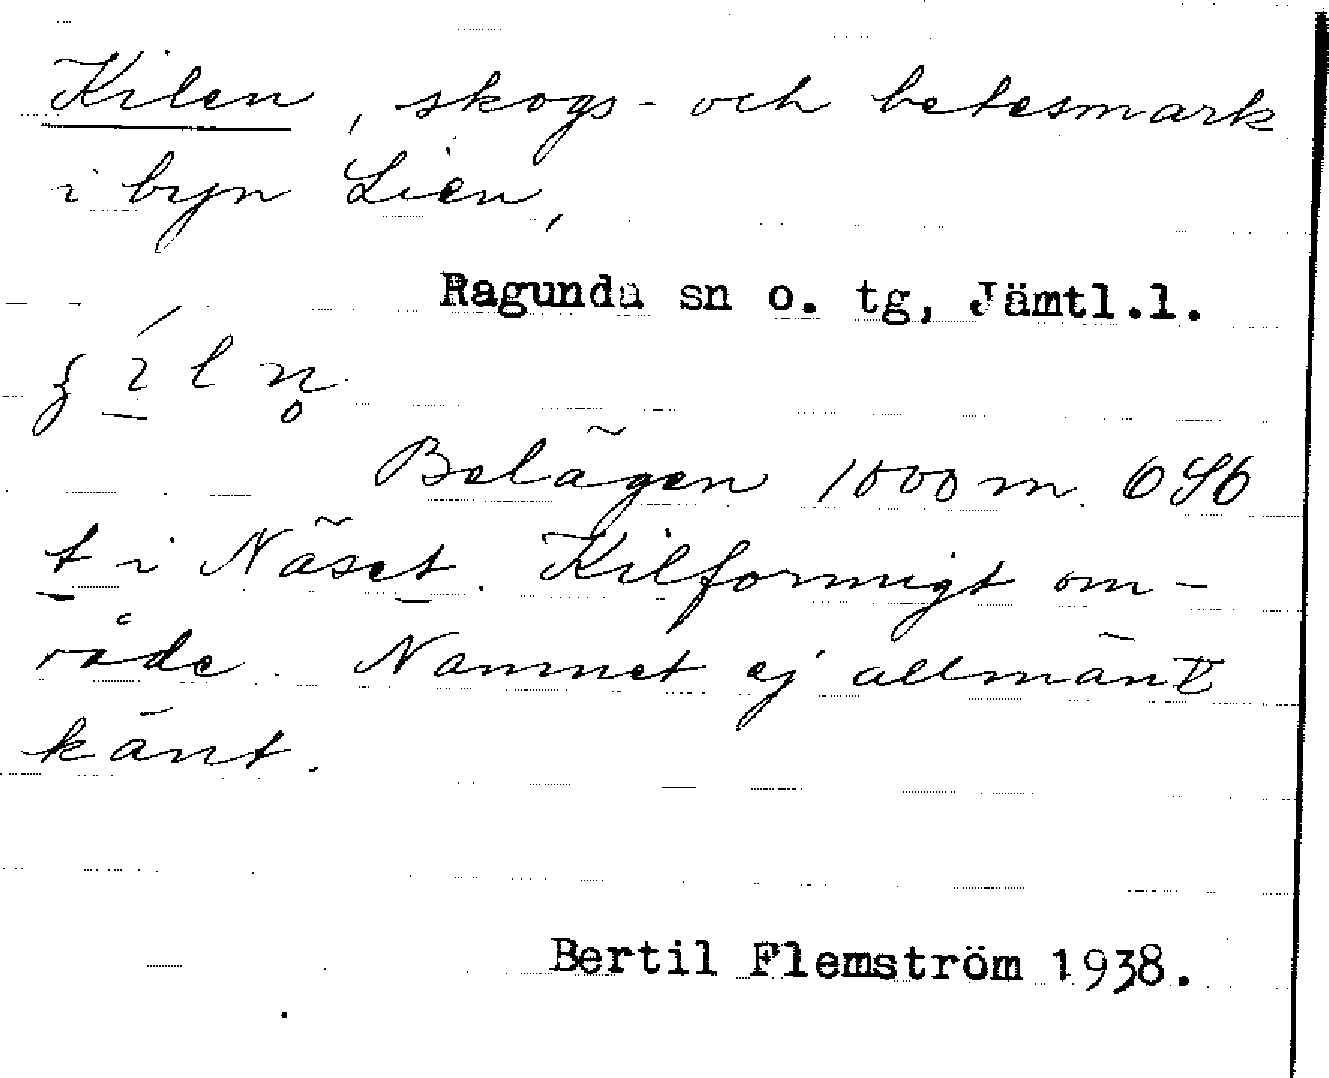 Kilen, skogs- och betesmark
i byn Lien,
Ragunda sn o. tg, Jämtl.l.
í l n̥
Belägen 1000 m. OSO
t i Näset. Kilformigt om-
råde. Namnet ej allmänt
känt.
Bertil Flemström 1938.